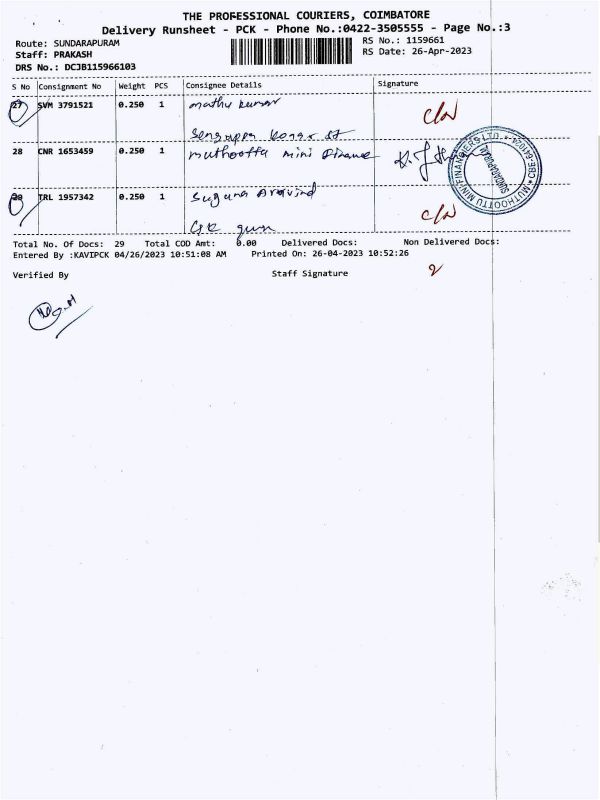 THE PROFESSIONAL COURIERS, COIMBATORE
Delivery Runsheet - PCK - Phone No.:0422-3505555 - Page No.:3
Route: SUNDARAPURAM
RS No.: 1159661
Staff: PRAKASH
RS Date: 26-Apr-2023
DRS No.: DCJB115966103
S No Consignment No Weight PCS Consignee Details Signature
27 SVM 3791521 0.250 1 mathu kumar C/N
28 CNR 1653459 0.250 1 muthootta mini finance
29 TRL 1957342 0.250 1 Suguna Aravind C/N
MUTHOOTTU MINI FINANCIERS LTD
SUNDARAPURAM
Total No. Of Docs: 29 Total COD Amt: 0.00 Delivered Docs: Non Delivered Docs:
Entered By :KAVIPCK 04/26/2023 10:51:08 AM Printed On: 26-04-2023 10:52:26
Verified By Staff Signature 2